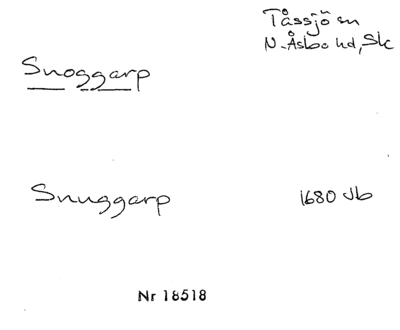 Tåssjö sn
N. Åsbo hd, Sk
Snoggarp
Snuggarp
1680 Jb
Nr 18518